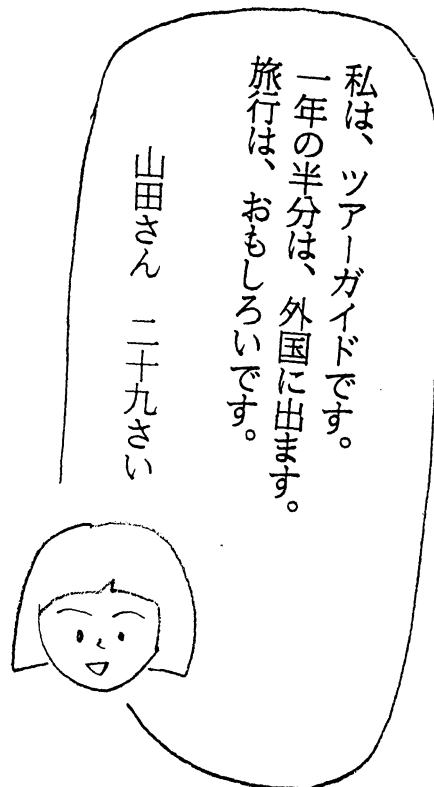 私は、ツアーガイドです。
一年の半分は、外国に出ます。
旅行は、おもしろいです。
山田さん　二十九さい